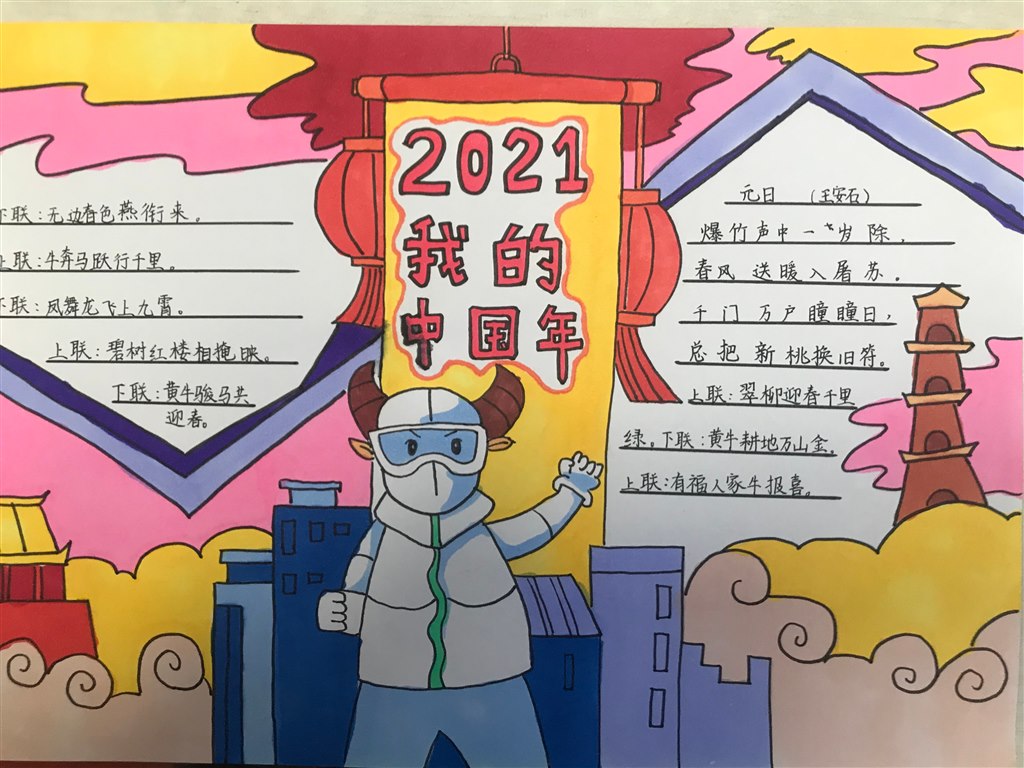 2021
我的
中国年
下联:无边春色燕衔来。
上联:牛奔马跃行千里。
下联:凤舞龙飞上九霄。
上联:碧树红楼相掩映。
下联:黄牛骏马共
迎春。
元日 (王安石)
爆竹声中一岁除,
春风送暖入屠苏。
千门万户瞳瞳日,
总把新桃换旧符。
上联:翠柳迎春千里
绿。下联:黄牛耕地万山金。
上联:有福人家牛报喜。